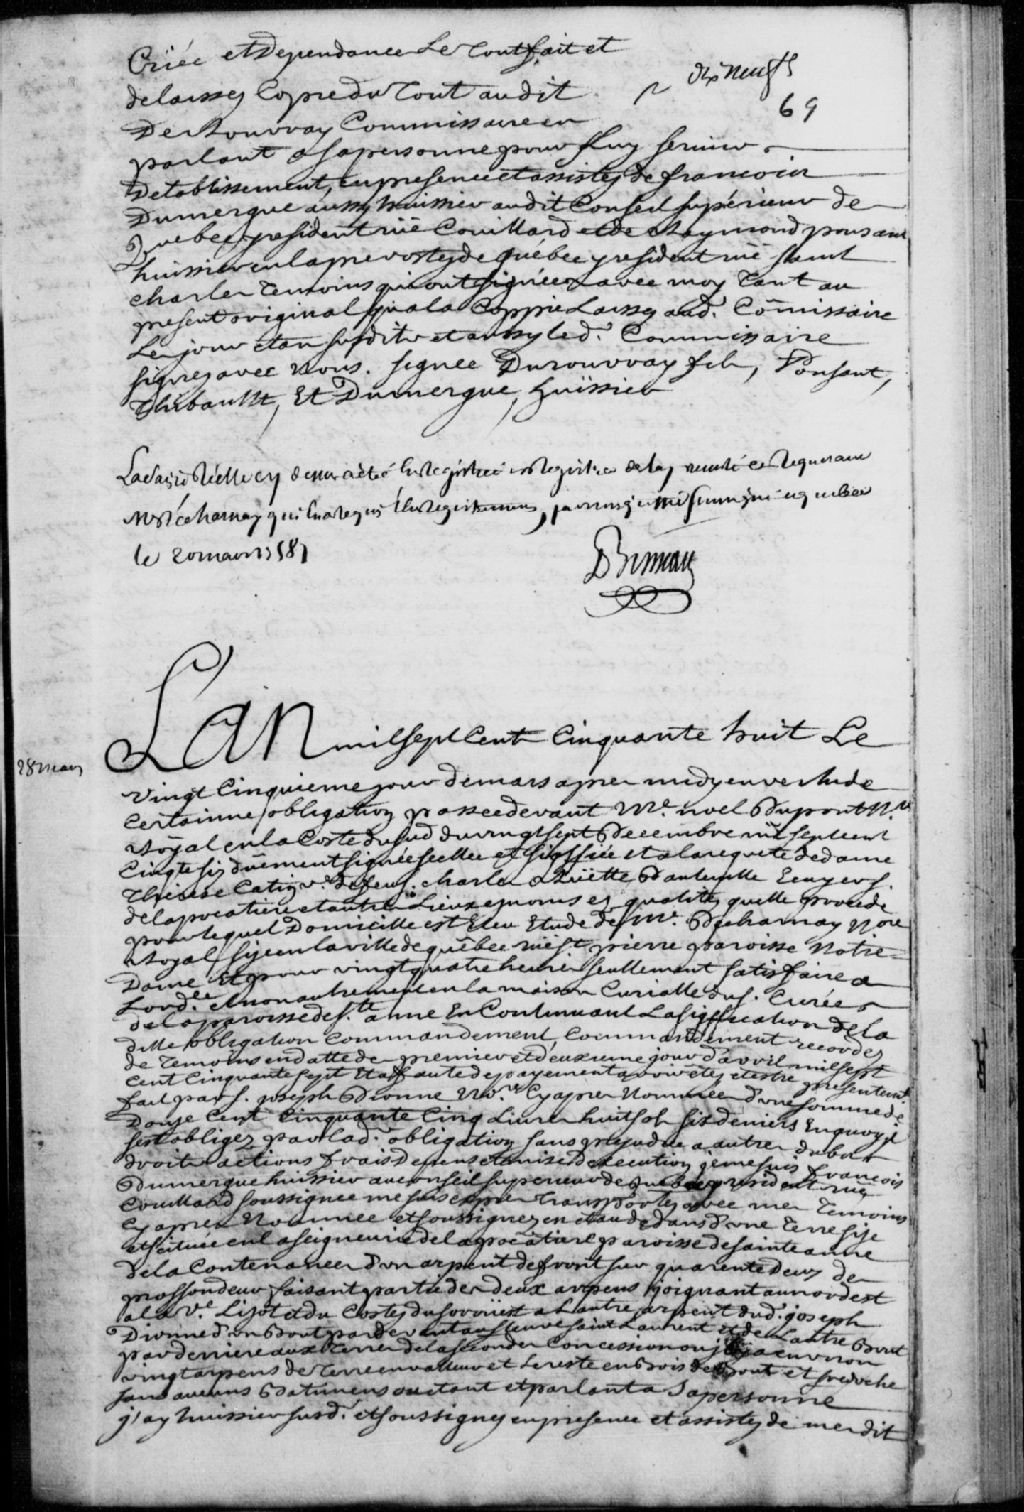 Criée et Dependance Le tout fait et
delaissey Copie du Tout audit
dix neufe
69
De Rouvray Commissaire en
parlant a sapersonne pour Luy servir
Detablissement, en presence et assistey de francois
Dumergue aussy huissier audit Conseil supérieur de
Quebec y resident ruë Couillard et de Raymond ponsant
huissier en la prevostey de québec y resident ruë saint
charles Temoins qui ont signéez avec moy Tant au
present original qua la Coppie Laissey aud. Cõmissaire
Les jour et an susdits et aussy led. Commissaire
signez avec nous. signee Durouvray fils, Ponsant,
Thibault, Et Dumergue, huissier
La saisie Réelle cy dessus a été Enregistrée
le 20 mars 1758
28 mars
L'an mil sept Cent Cinquante huit Le
vingt Cinquieme jour de mars apres midy en vertu de
Certainne obligation passee devant Me. noel Dupont Nre.
Royal en la Coste du sud du vingt sept Decembre mil sept cent
Cinqte six duëment signée scellée et et a la requete de dame
Therese Catin ve. de feu s. charles Ruëtte Dauteuille Ecuyer s.
de la pocatiere et autres Lieux es noms es qualités quelle procede
pour lequel Domicille est Eleu Etude de Me. Decharnay Nore
Royal sise en la ville de québec ruë st. pierre paroisse Notre
Dame Et pour vingt quatre heures seullement satisfaire a
Lord.ce et non autrement en la maison Curialle du s. Curée
de la paroisse de ste. anne En Continuant La signification de La
ditte obligation Commandement, Commandement recordez
de Temoins en datte de premier et deuxieme jour d'avril mil sept
Cent Cinquante sept Et a faute de payement avoir été et estre presentement
fait par s. joseph Dionne Cy apres Nommée d'une somme de
Douse Cent Cinquante Cinq Livres huit sols six deniers En quoy il
sest obligez par lad. obligation sans prejudice a autres
droits actions frais Depens et mises Dexecution je me suis francois
Dumergue huissier au conseil superieur de quebec y resident rue
Couillard soussignee me suis expres Transportez avec mes Temoins
Cy apres Nommee et soussignez en et au dedans d'une Terre sise
et scituée en La seigneurie de la pocatiere paroisse de sainte anne
de la Contenance d'un arpent de front sur quarente Deux de
proffondeur faisant partie de deux arpens joignant au nordest
a la ve. Lizot et du Costey du sorouëst a Lautre arpent dud. joseph
Dionne d'un Bout par devant au fleuve saint Laurent et de Lautre Bout
par derriere aux Terres de la seconde Concession ou il y a environ
vingt arpens de Terre en valleur et Le reste en Bois de Bout et friche
sans aucuns Batimens ou etant et parlant a sa personne
j'ay huissier susd. et soussigney en presence et assistey de mesdit